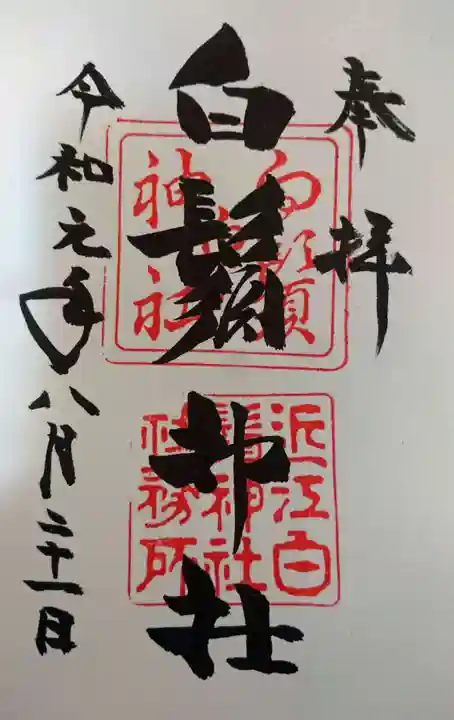 奉拝
白鬚神社
令和元年八月二十一日
近江白
鬚神社
社務所